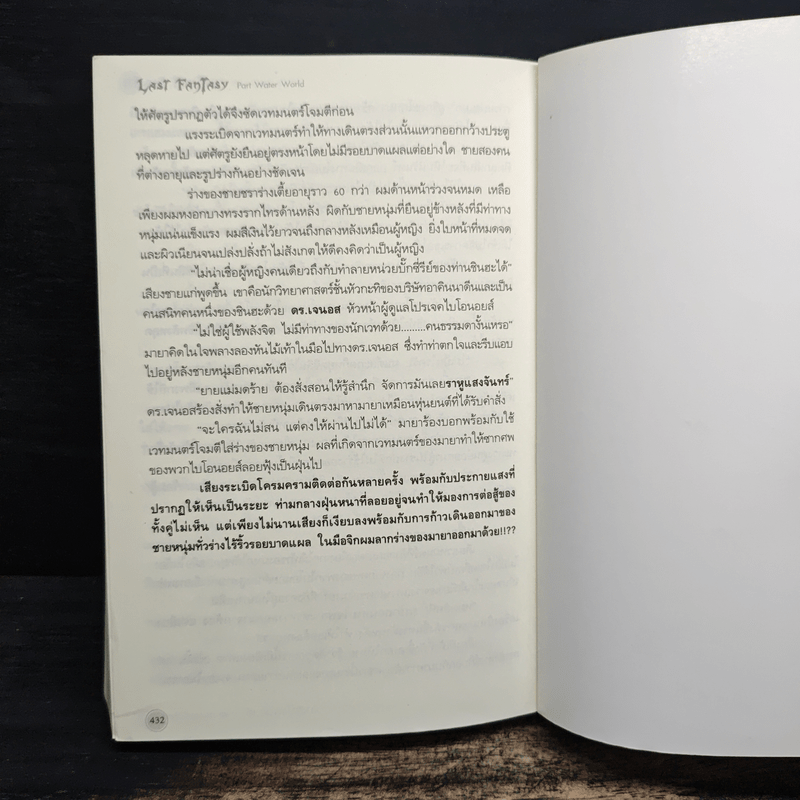 Last Fantasy Part Water World
ให้ศัตรูปรากฏตัวได้จึงซัดเวทมนตร์โจมตีก่อน
แรงระเบิดจากเวทมนตร์ทำให้ทางเดินตรงส่วนนั้นแหวกออกกว้างประตู
หลุดหายไป แต่ศัตรูยังยืนอยู่ตรงหน้าโดยไม่มีรอยบาดแผลแต่อย่างใด ชายสองคน
ที่ต่างอายุและรูปร่างกันอย่างชัดเจน
ร่างของชายชราร่างเตี้ยอายุราว 60 กว่า ผมด้านหน้าร่วงจนหมด เหลือ
เพียงผมหงอกบางทรงรากไทรด้านหลัง ผิดกับชายหนุ่มที่ยืนอยู่ข้างหลังที่มีท่าทาง
หนุ่มแน่นแข็งแรง ผมสีเงินไว้ยาวจนถึงกลางหลังเหมือนผู้หญิง ยิ่งใบหน้าที่หมดจด
และผิวเนียนจนเปล่งปลั่งถ้าไม่สังเกตให้ดีคงคิดว่าเป็นผู้หญิง
"ไม่น่าเชื่อผู้หญิงคนเดียวถึงกับทำลายหน่วยบั๊กซี่รีย์ของท่านชินฮะได้"
เสียงชายแก่พูดขึ้น เขาคือนักวิทยาศาสตร์ชั้นหัวกะทิของบริษัทอาคินาดีนและเป็น
คนสนิทคนหนึ่งของชินฮะด้วย ดร.เจนอส หัวหน้าผู้ดูแลโปรเจคไบโอนอยส์
"ไม่ใช่ผู้ใช้พลังจิต ไม่มีท่าทางของนักเวทด้วย........คนธรรมดางั้นเหรอ"
มายาคิดในใจพลางลองหันไม้เท้าในมือไปทางดร.เจนอส ซึ่งทำท่าตกใจและรีบแอบ
ไปอยู่หลังชายหนุ่มอีกคนทันที
"ยายแม่มดร้าย ต้องสั่งสอนให้รู้สำนึก จัดการมันเลยราหูแสงจันทร์"
ดร.เจนอสร้องสั่งทำให้ชายหนุ่มเดินตรงมาหามายาเหมือนหุ่นยนต์ที่ได้รับคำสั่ง
"จะใครฉันไม่สน แต่คงให้ผ่านไปไม่ได้" มายาร้องบอกพร้อมกับใช้
เวทมนตร์โจมตีใส่ร่างของชายหนุ่ม ผลที่เกิดจากเวทมนตร์ของมายาทำให้ซากศพ
ของพวกไบโอนอยส์ลอยฟุ้งเป็นฝุ่นไป
เสียงระเบิดโครมครามติดต่อกันหลายครั้ง พร้อมกับประกายแสงที่
ปรากฏให้เห็นเป็นระยะ ท่ามกลางฝุ่นหนาที่ลอยอยู่จนทำให้มองการต่อสู้ของ
ทั้งคู่ไม่เห็น แต่เพียงไม่นานเสียงก็เงียบลงพร้อมกับการก้าวเดินออกมาของ
ชายหนุ่มทั่วร่างไร้ริ้วรอยบาดแผล ในมือจิกผมลากร่างของมายาออกมาด้วย!!??
432